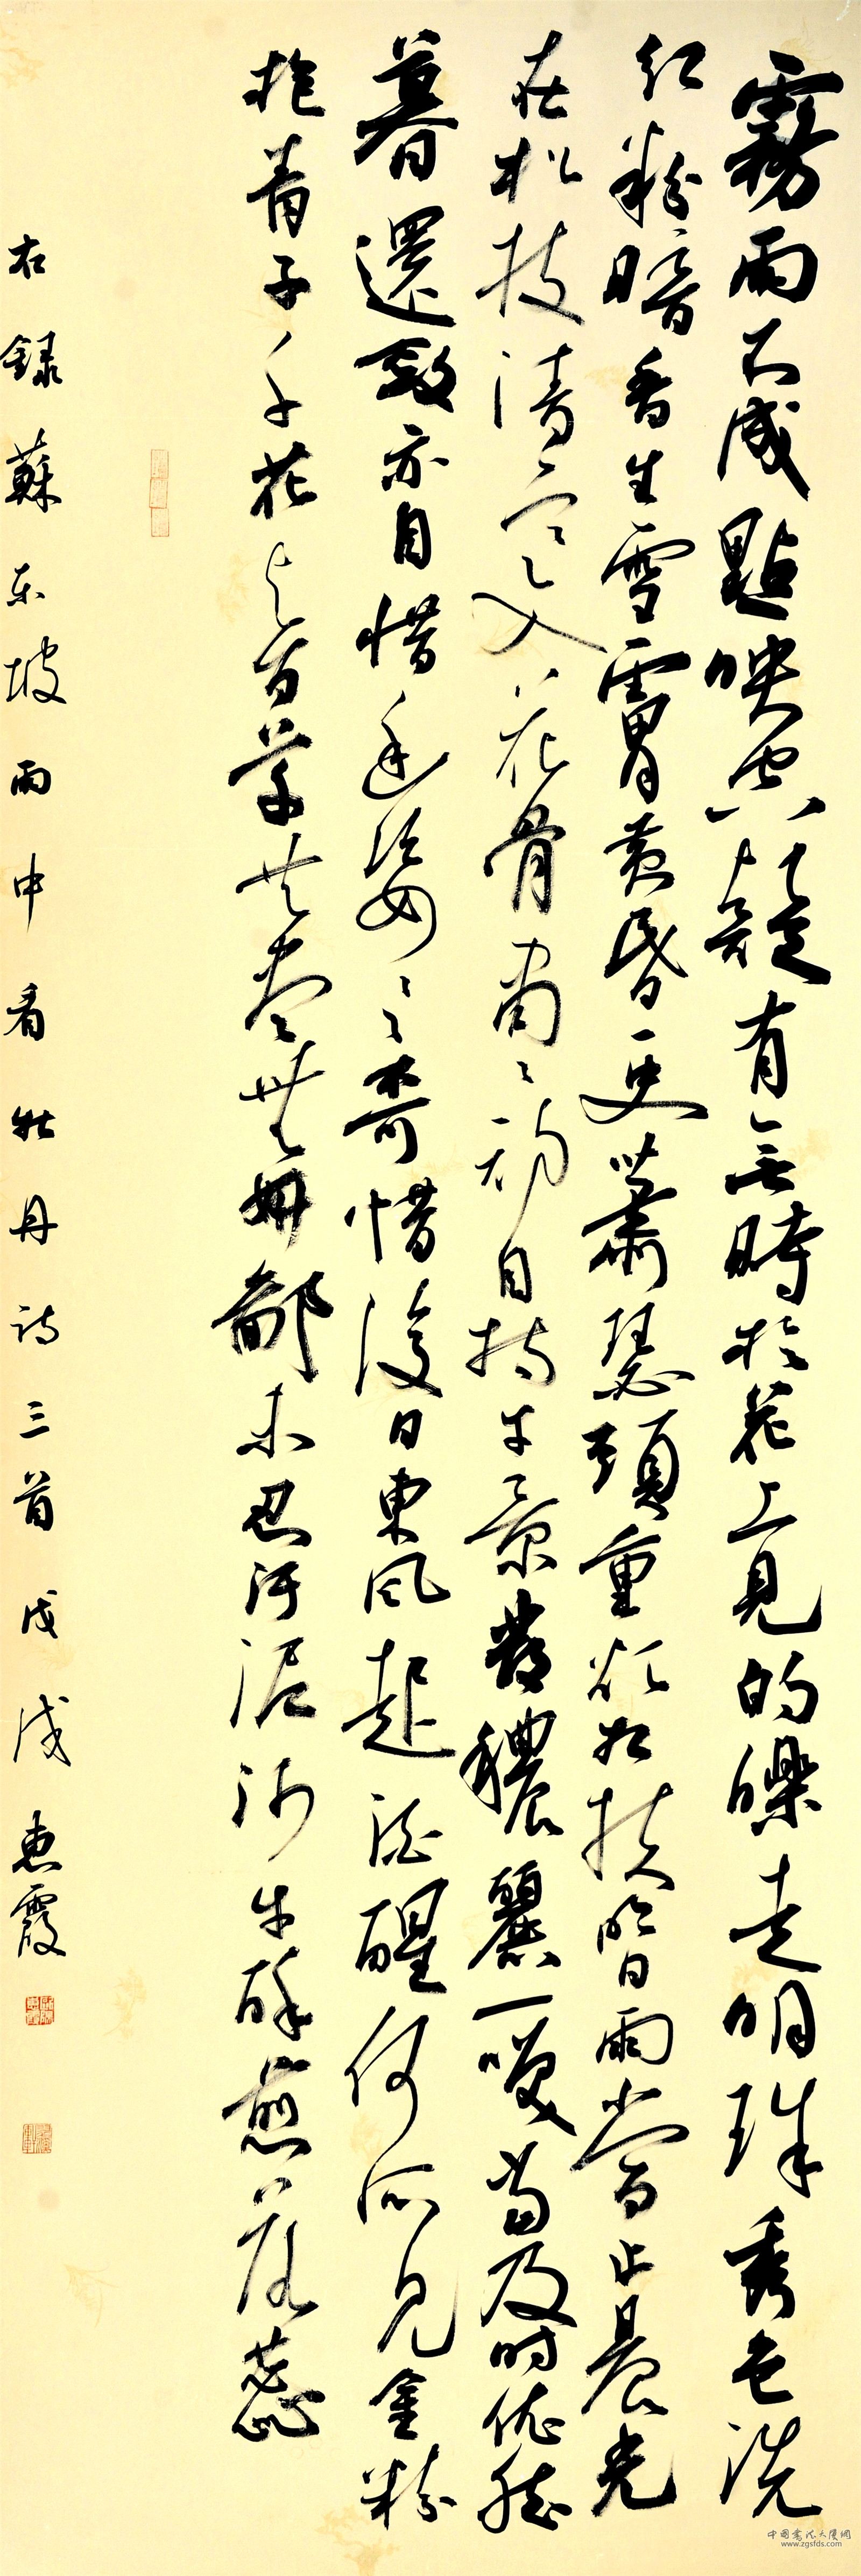 霧雨不成點映空疑有無時於花上見的皪走明珠秀色洗
紅粉暗香生雪膚黃昏更蕭瑟頭重欲相扶明日雨當止晨光
在松枝清寒入花骨肅肅初自持午景發穠麗一笑當及時依然
暮還斂亦自惜幽姿幽姿不可惜後日東風起酒醒何所見金粉
抱青子千花與百草共盡無妍鄙未忍污泥沙牛酥煎落蕊
右錄蘇东坡雨中看牡丹诗三首戊戌惠霞
中国书法大厦网
www.zgsfds.com